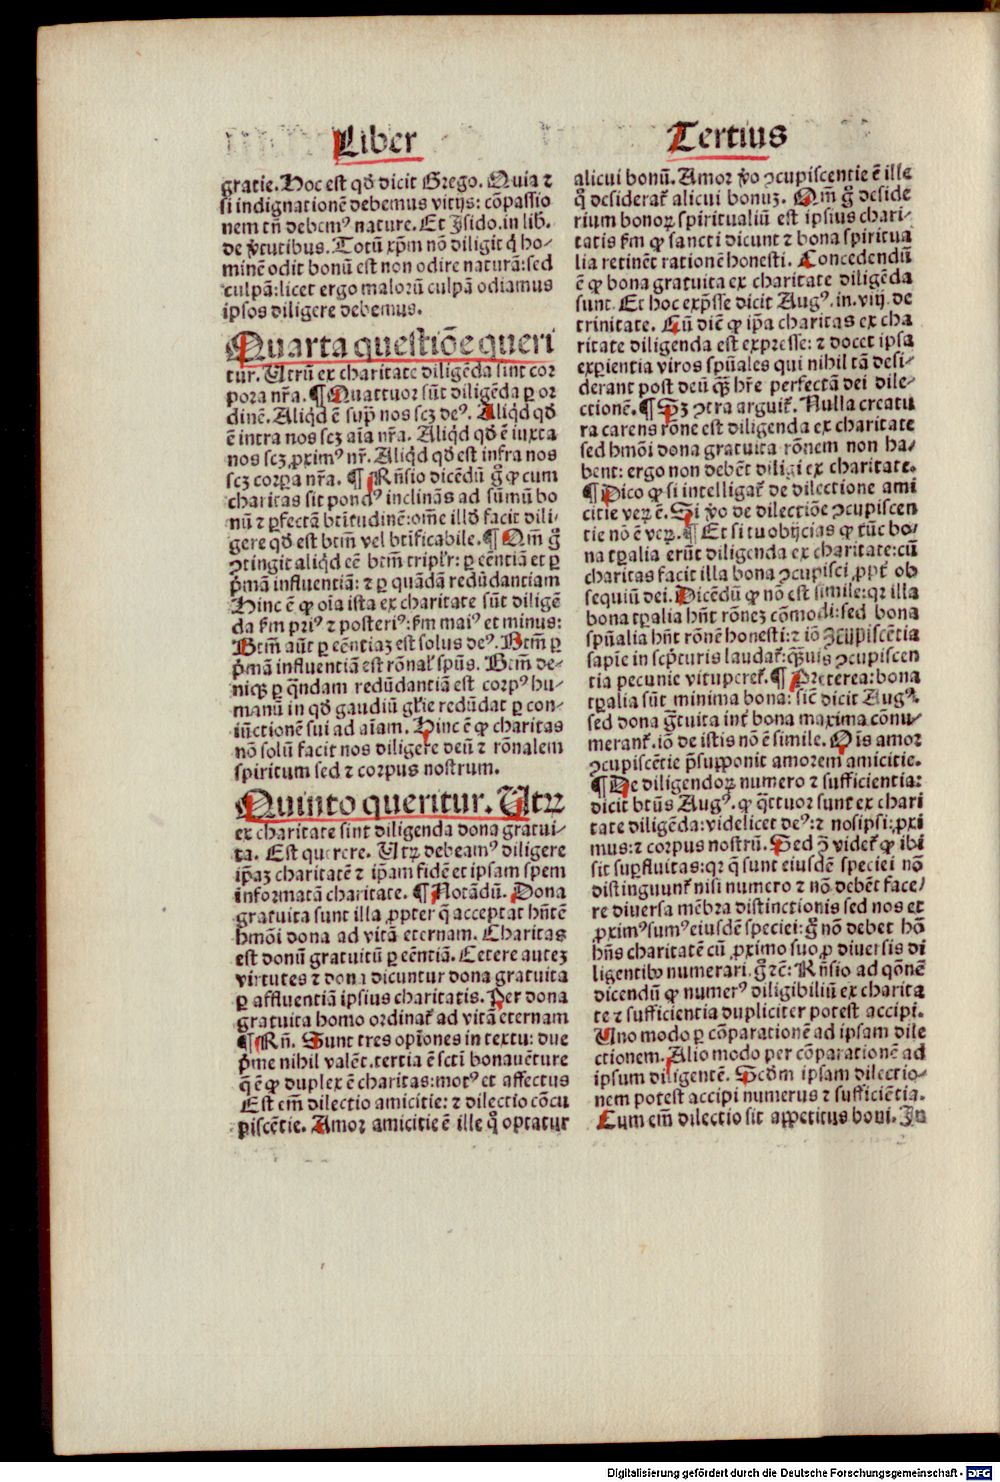 Liber
Tertius
gratie. Hoc est qđ dicit Grego. Quia ⁊
si indignationē debemus vitijs: cōpassio
nem tn̄ debemꝰ nature. Et Isido. in lib̄.
de v̓tutibus. Totū xp̄m nō diligit q̇ ho-
minē odit bonū est non odire naturā: sed
culpā: licet ergo malorū culpā odiamus
ipsos diligere debemus.
Quarta questiōe queri
tur. Utrū ex charitate diligēda sint cor
pora nr̄a. ¶ Quattuor sūt diligēda ꝑ or
dinē. Aliqd̓ ē sup̄ nos scꝫ deꝰ. Aliqd̓ qđ
ē intra nos scꝫ aīa nr̄a. Aliqd̓ qđ ē iuxta
nos scꝫ ꝓximꝰ nr̄. Aliqd̓ qđ est infra nos
scꝫ corꝑa nr̄a. ¶ Rn̄sio dicēdū gͦ ꝙ cum
charitas sit pondꝰ inclinās ad sūmū bo
nū ⁊ ꝑfectā btītudinē: om̄e illđ facit dili-
gere qđ est btm̄ vel btīficabile. ¶ Qm̄ gͦ
ↄtingit aliqd̓ eē btm̄ tripl̓r: ꝑ eēntiā et ꝑ
p̓mā influentiā: ⁊ ꝑ quādā redūdantiam
Hinc ē ꝙ oīa ista ex charitate sūt diligē
da fm̄ priꝰ ⁊ posteriꝰ: fm̄ maiꝰ et minus:
Btm̄ aūt ꝑ eēntiaꝫ est solus deꝰ. Btm̄ ꝑ
p̓mā influentiā est rōnal̓ spūs. Btm̄ de-
niqꝫ ꝑ q̄ndam redūdantiā est corpꝰ hu-
manū in qđ gaudiū gl̓ie redūdat ꝑ con-
iūctionē sui ad aīam. Hinc ē ꝙ charitas
nō solū facit nos diligere deū ⁊ rōnalem
spiritum sed ⁊ corpus nostrum.
Quinto queritur. Utꝝ
ex charitate sint diligenda dona gratui-
ta. Est querere. Utꝝ debeamꝰ diligere
ip̄aꝫ charitatē ⁊ ip̄am fidē et ipsam spem
informatā charitate. ¶ Notādū. Dona
gratuita sunt illa ꝓpter q̄ acceptat hn̄tē
hmōi dona ad vitā eternam. Charitas
est donū gratuitū ꝑ eēntiā. Cetere auteꝫ
virtutes ⁊ dona dicuntur dona gratuita
ꝑ affluentiā ipsius charitatis. Per dona
gratuita homo ordinat̄ ad vitā eternam
¶ Rn̄. Sunt tres opīones in textu: due
p̓me nihil valēt. tertia ē scti bonauēture
q̄ ē ꝙ duplex ē charitas: motꝰ et affectus
Est em̄ dilectio amicitie: ⁊ dilectio cōcu
piscētie. Amor amicitie ē ille qͦ optatur
alicui bonū. Amor v̓o ↄcupiscentie ē ille
qͦ desiderat̄ alicui bonuꝫ. Qm̄ gͦ deside
rium bonoꝝ spiritualiū est ipsius chari-
tatis fm̄ ꝙ sancti dicunt ⁊ bona spiritua
lia retinēt rationē honesti. Concedendū
ē ꝙ bona gratuita ex charitate diligēda
sunt. Et hoc exp̄sse dicit Augꝰ. in. viij. de
trinitate. Cū dicē ꝙ ip̄a charitas ex cha
ritate diligenda est expresse: ⁊ docet ipsa
exꝑientia viros spūales qui nihil tā desi-
derant post deū qꝫ hr̄e perfectā dei dile-
ctionē. ¶ Sꝫ ↄtra arguit̄. Nulla creatu
ra carens rōne est diligenda ex charitate
sed hmōi dona gratuita rōnem non ha-
bent: ergo non debēt diligi ex charitate.
¶ Dico ꝙ si intelligat̄ de dilectione ami
citie veꝝ ē. Si v̓o de dilectiōe ↄcupiscen
tie nō ē veꝝ. ¶ Et si tu obijcias ꝙ tūc bo-
na tꝑalia erūt diligenda ex charitate: cū
charitas facit illa bona ↄcupisci ꝓpt̄ ob
sequiū dei. Dicēdū ꝙ nō est simile: qꝛ illa
bona tꝑalia hn̄t rōneꝫ cōmodi: sed bona
spūalia hn̄t rōnē honesti: ⁊ iō ↄcupiscētia
sapīe in sc̓pturis laudat̄: qꝫuis ↄcupiscen
tia pecunie vituperet̄. ¶ Preterea: bona
tꝑalia sūt minima bona: sic̄ dicit Augꝰ.
sed dona gtuita int̄ bona maxima cōnu-
merant̄. iō de istis nō ē simile. Oīs amor
ↄcupiscētie p̄supponit amorem amicitie.
¶ De diligendoꝝ numero ⁊ sufficientia:
dicit btūs Augꝰ. ꝙ q̄ttuor sunt ex chari
tate diligēda: videlicet deꝰ: ⁊ nosipsi: ꝓxi
mus: ⁊ corpus nostrū. Sed ꝯ̄ videt̄ ꝙ ibi
sit suꝑfluitas: qꝛ q̄ sunt eiusdē speciei nō
distinguunt̄ nisi numero ⁊ nō debēt face/
re diuersa mēbra distinctionis sed nos et
ꝓximꝰ sumꝰ eiusdē speciei: gͦ nō debet hō
hn̄s charitatē cū ꝓximo suo ꝑ diuersis di
ligentibꝰ numerari. gͦ ⁊c̄: Rn̄sio ad qōnē
dicendū ꝙ numerꝰ diligibiliū ex charita
te ⁊ sufficientia dupliciter potest accipi.
Uno modo ꝑ cōparationē ad ipsam dile
ctionem. Alio modo per cōparationē ad
ipsum diligentē. Scđm ipsam dilectio-
nem potest accipi numerus ⁊ sufficiētia.
Cum em̄ dilectio sit appetitus boni. In
Digitalisierung gefördert durch die Deutsche Forschungsgemeinschaft - DFG